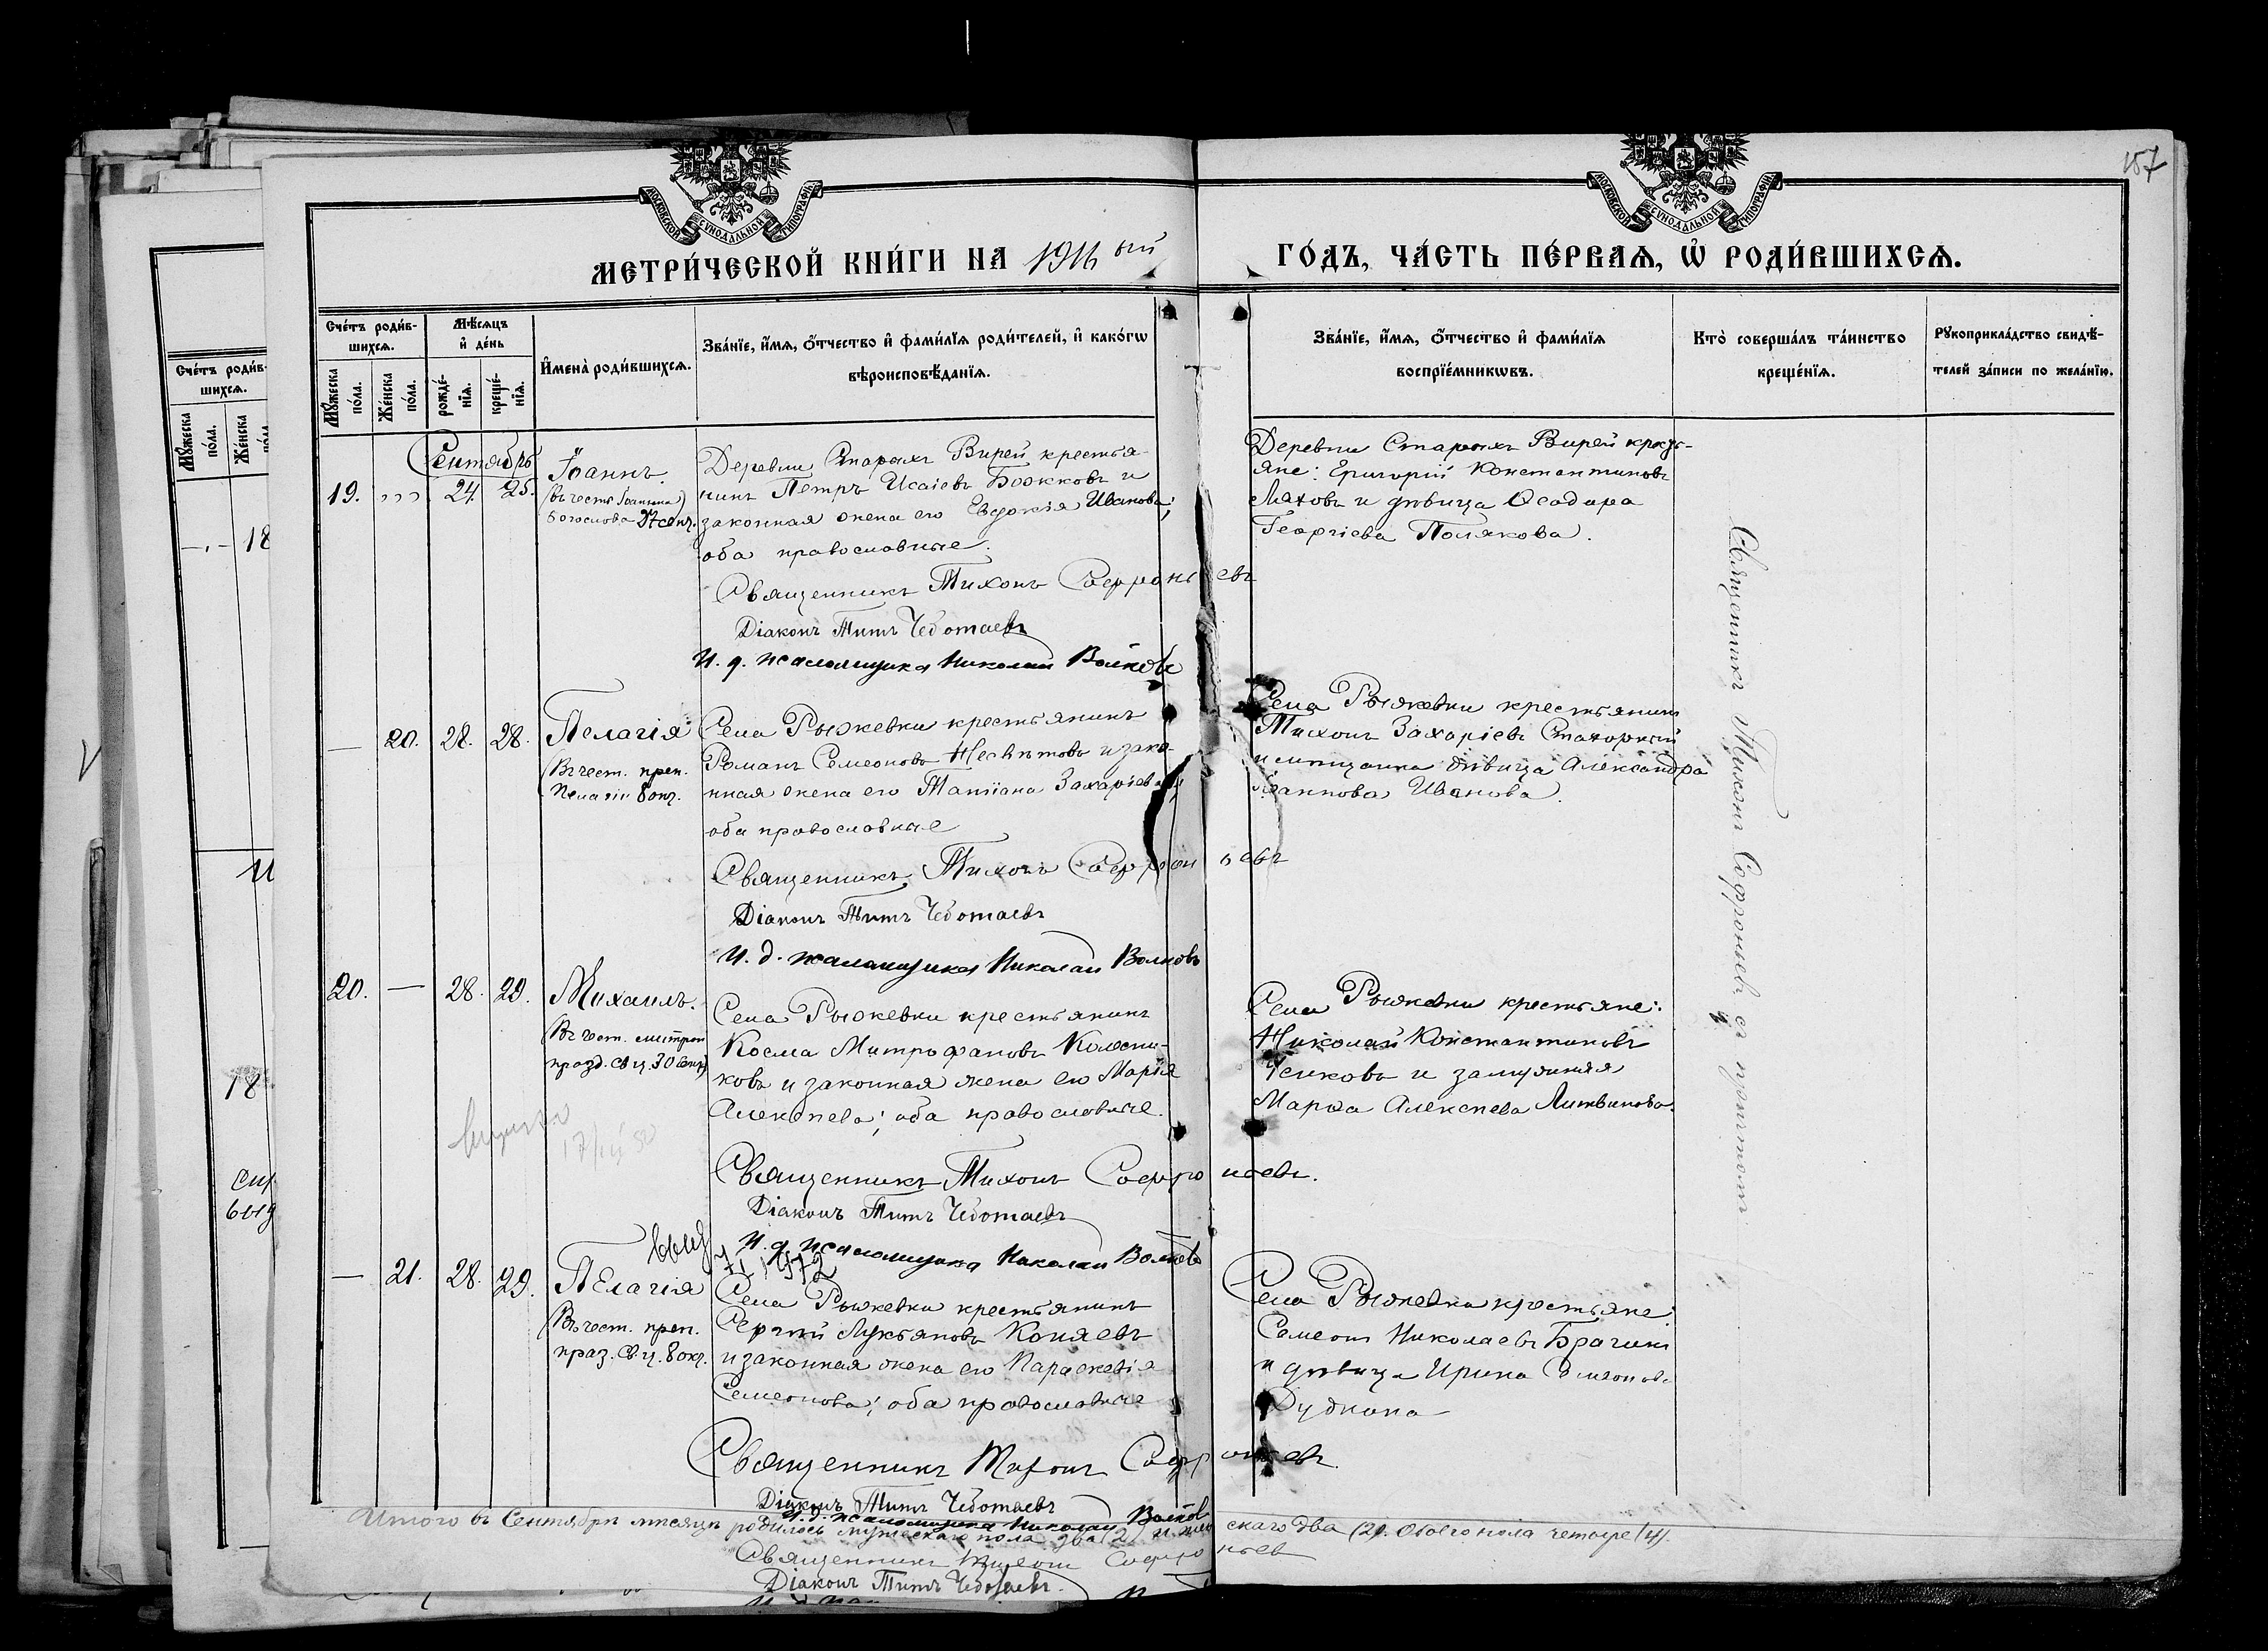 157
МОСКОВСКОЙ СѴНОДАЛЬНОЙ ТИПОГРАФІИ
МОСКОВСКОЙ СѴНОДАЛЬНОЙ ТИПОГРАФІИ
МЕТРИ́ЧЕСКОЙ КНИ́ГИ НА 1916 ый
ГО́ДЪ, ЧА́СТЬ ПЕ́РВАѦ, Ѡ҆ РОДИ́ВШИХСѦ.
Счётъ роди́в-
шихсѧ.
Мѹ́жеска по́ла.
Же́нска по́ла.
Мѣ́сѧцъ и҆ де́нь
рожде́-нїѧ.
креще́-нїѧ.
И҆мена̀ роди́вшихсѧ.
Зва́нїе, и҆́мѧ, о҆́тчество и҆ фами́лїѧ роди́телей, и҆ како́гѡ
вѣроисповѣ́данїѧ.
Зва́нїе, и҆́мѧ, о҆́тчество и҆ фами́лїѧ
воспрїе́мникѡвъ.
Кто̀ соверша́лъ та́инство
креще́нїѧ.
Рꙋкоприкла́дство свидѣ́-
телей за́писи по жела́нїю.
Счётъ роди́в-
шихсѧ.
Мѹ́жеска по́ла.
Же́нска
18
18
Сентябрь
19. 24. 25.
Іоаннъ.
(въ честь Іоанна
Богослова 27 сент.
Деревни Старыхъ Вирей крестья-
нинъ Петръ Исаіевъ Божковъ и
законная жена его Евдокія Иванова;
оба православные.
Священникъ Тихонъ Софроньевъ
Діаконъ Титъ Чеботаевъ
И. д. псаломщика Николай Волковъ
Деревни Старыхъ Вирей кресть-
яне: Григорій Константиновъ
Ляховъ и дѣвица Ѳеодора
Георгіева Полякова.
— 20. 28. 28.
Пелагія
(Въ чест. преп.
Пелагіи 8 окт.
Села Рыжевки крестьянинъ
Романъ Семеоновъ и зако-
нная жена его Татіана Захаріева;
оба православные
Священникъ Тихонъ Софроньевъ
Діаконъ Титъ Чеботаевъ
И. д. псаломщика Николай Волковъ
Села Рыжевки крестьянинъ
Тихонъ Захаріевъ
и мѣщанка дѣвица Александра
Іоаннова Иванова.
20. — 28. 29.
Михаилъ.
(Въ чест. митроп
празд. св. ц. 30 сент)
Села Рыжевки крестьянинъ
Косма Митрофановъ Колесни-
ковъ и законная жена его Марія
Алексѣева; оба православные.
Священникъ Тихонъ Софроньевъ.
Діаконъ Титъ Чеботаевъ
И. д. псаломщика Николай Волковъ
Села Рыжевки крестьяне:
Николай Константиновъ
и замужняя
Марѳа Алексѣева Литвинова.
— 21. 28. 29.
Пелагія
(Въ чест. преп.
праз. св. ц. 8 окт.
Села Рыжевки крестьянинъ
Сергій Лукьяновъ Коняевъ
и законная жена его Параскевія
Семеонова; оба православные
Священникъ Тихонъ Софроньевъ.
Діаконъ Титъ Чеботаевъ
И. д. псаломщика Николай Волковъ
Села Рыжевки крестьяне:
Семеонъ Николаевъ
и дѣвица Ирина Симеонова
Священникъ Тихонъ Софроньевъ съ причтомъ
Итого въ Сентябрѣ мѣсяцѣ родилось мужескаго пола два (2) и женскаго два (2). Обоего пола четыре (4).
Священникъ Тихонъ Софроньевъ
Діаконъ Титъ Чеботаевъ.